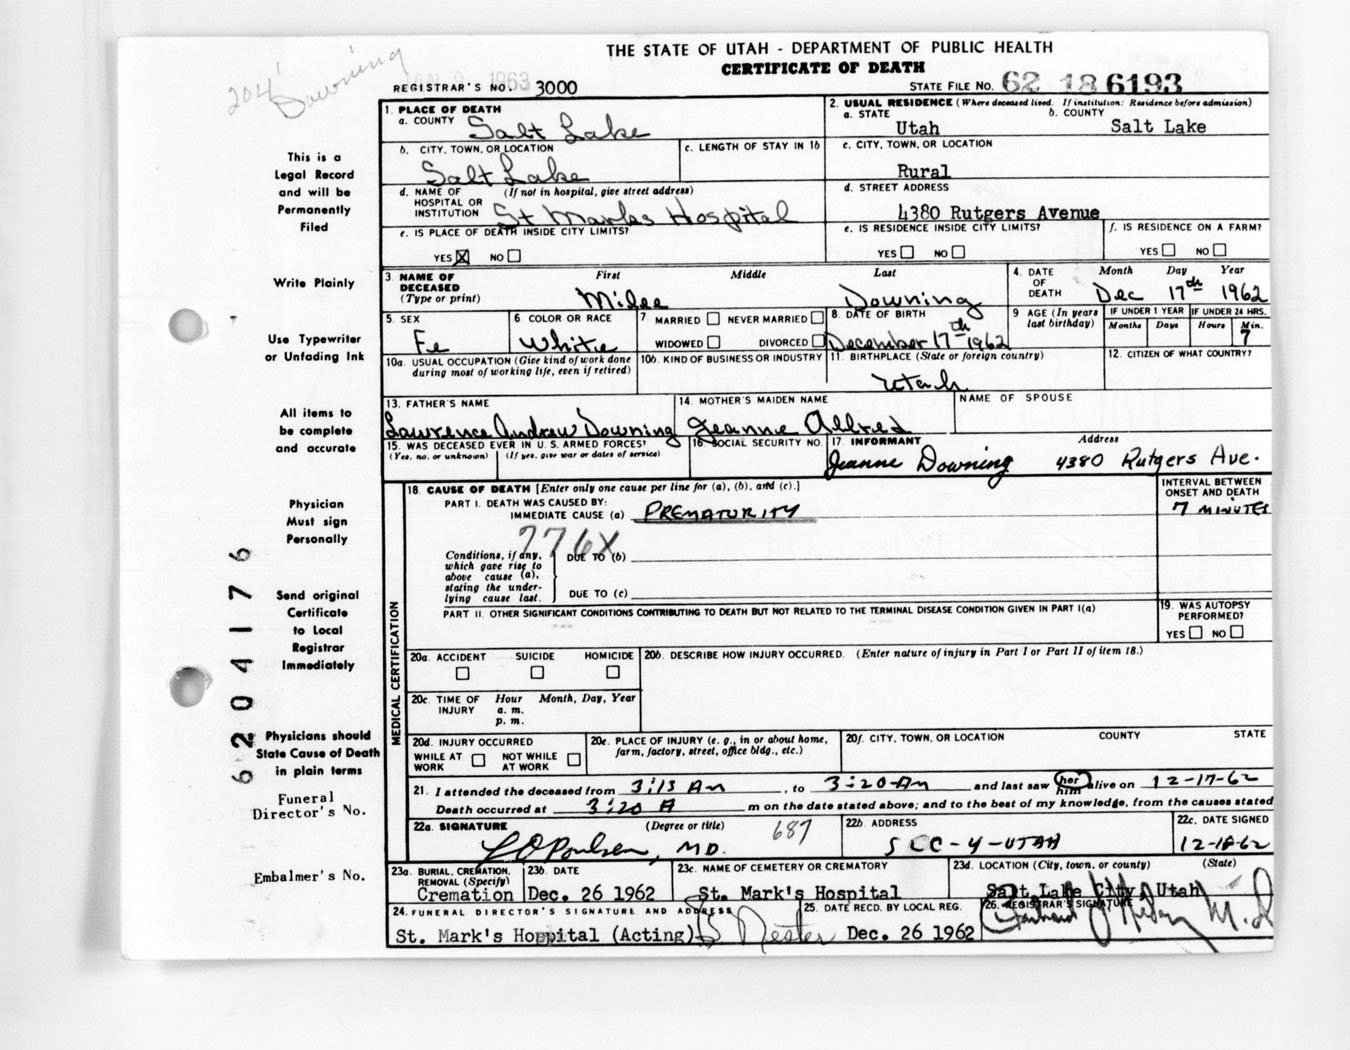 204'
Downing
THE STATE OF UTAH - DEPARTMENT OF PUBLIC HEALTH
CERTIFICATE OF DEATH
JAN 9 1963
REGISTRAR'S NO. 3000
STATE FILE NO. 62 18 6193
1. PLACE OF DEATH
a. COUNTY Salt Lake
2. USUAL RESIDENCE (Where deceased lived. If institution: Residence before admission)
a. STATE Utah b. COUNTY Salt Lake
b. CITY, TOWN, OR LOCATION Salt Lake
c. LENGTH OF STAY IN 1b
c. CITY, TOWN, OR LOCATION
Rural
d. NAME OF HOSPITAL OR INSTITUTION (If not in hospital, give street address)
St Marks Hospital
d. STREET ADDRESS
4380 Rutgers Avenue
e. IS PLACE OF DEATH INSIDE CITY LIMITS?
YES X NO
e. IS RESIDENCE INSIDE CITY LIMITS?
YES NO
f. IS RESIDENCE ON A FARM?
YES NO
3. NAME OF DECEASED (Type or print)
First Middle Last
Downing
4. DATE OF DEATH
Month Day Year
Dec 17th 1962
5. SEX
Fe
6. COLOR OR RACE
White
7. MARRIED NEVER MARRIED
WIDOWED DIVORCED
8. DATE OF BIRTH
December 17th 1962
9 AGE (In years last birthday)
IF UNDER 1 YEAR IF UNDER 24 HRS.
Months Days Hours Min.
7
10a. USUAL OCCUPATION (Give kind of work done during most of working life, even if retired)
10b. KIND OF BUSINESS OR INDUSTRY
11. BIRTHPLACE (State or foreign country)
Utah
12. CITIZEN OF WHAT COUNTRY?
13. FATHER'S NAME
Lawrence Andrew Downing
14. MOTHER'S MAIDEN NAME
Jeanne Allred
NAME OF SPOUSE
15. WAS DECEASED EVER IN U. S. ARMED FORCES?
(Yes, no, or unknown) (If yes, give war or dates of service)
16 SOCIAL SECURITY NO.
17. INFORMANT Address
Jeanne Downing 4380 Rutgers Ave.
MEDICAL CERTIFICATION
18. CAUSE OF DEATH [Enter only one cause per line for (a), (b), and (c).]
INTERVAL BETWEEN ONSET AND DEATH
PART I. DEATH WAS CAUSED BY:
IMMEDIATE CAUSE (a) PREMATURITY
7 MINUTES
776X
Conditions, if any, which gave rise to above cause (a), stating the underlying cause last.
DUE TO (b)
DUE TO (c)
PART II. OTHER SIGNIFICANT CONDITIONS CONTRIBUTING TO DEATH BUT NOT RELATED TO THE TERMINAL DISEASE CONDITION GIVEN IN PART I(a)
19. WAS AUTOPSY PERFORMED?
YES NO
20a. ACCIDENT SUICIDE HOMICIDE
20b. DESCRIBE HOW INJURY OCCURRED. (Enter nature of injury in Part I or Part II of item 18.)
20c. TIME OF INJURY Hour Month, Day, Year
a. m.
p. m.
20d. INJURY OCCURRED
WHILE AT WORK NOT WHILE AT WORK
20e. PLACE OF INJURY (e. g., in or about home, farm, factory, street, office bldg., etc.)
20f. CITY, TOWN, OR LOCATION COUNTY STATE
21. I attended the deceased from 3:13 Am, to 3:20 Am and last saw her him alive on 12-17-62
Death occurred at 3:20 A m on the date stated above; and to the best of my knowledge, from the causes stated
22a. SIGNATURE (Degree or title) 687
L O Poulsen, M.D.
22b. ADDRESS
SLC-4-UTAH
22c. DATE SIGNED
12-18-62
23a. BURIAL, CREMATION, REMOVAL (Specify)
Cremation
23b. DATE
Dec. 26 1962
23c. NAME OF CEMETERY OR CREMATORY
St. Mark's Hospital
23d. LOCATION (City, town, or county) (State)
Salt Lake City, Utah
24. FUNERAL DIRECTOR'S SIGNATURE AND ADDRESS
St. Mark's Hospital (Acting) Nester
25. DATE RECD. BY LOCAL REG.
Dec. 26 1962
26. REGISTRAR'S SIGNATURE
M.D
This is a
Legal Record
and will be
Permanently
Filed
Write Plainly
Use Typewriter
or Unfading Ink
All items to
be complete
and accurate
Physician
Must sign
Personally
Send original
Certificate
to Local
Registrar
Immediately
Physicians should
State Cause of Death
in plain terms
Funeral
Director's No.
Embalmer's No.
6204176